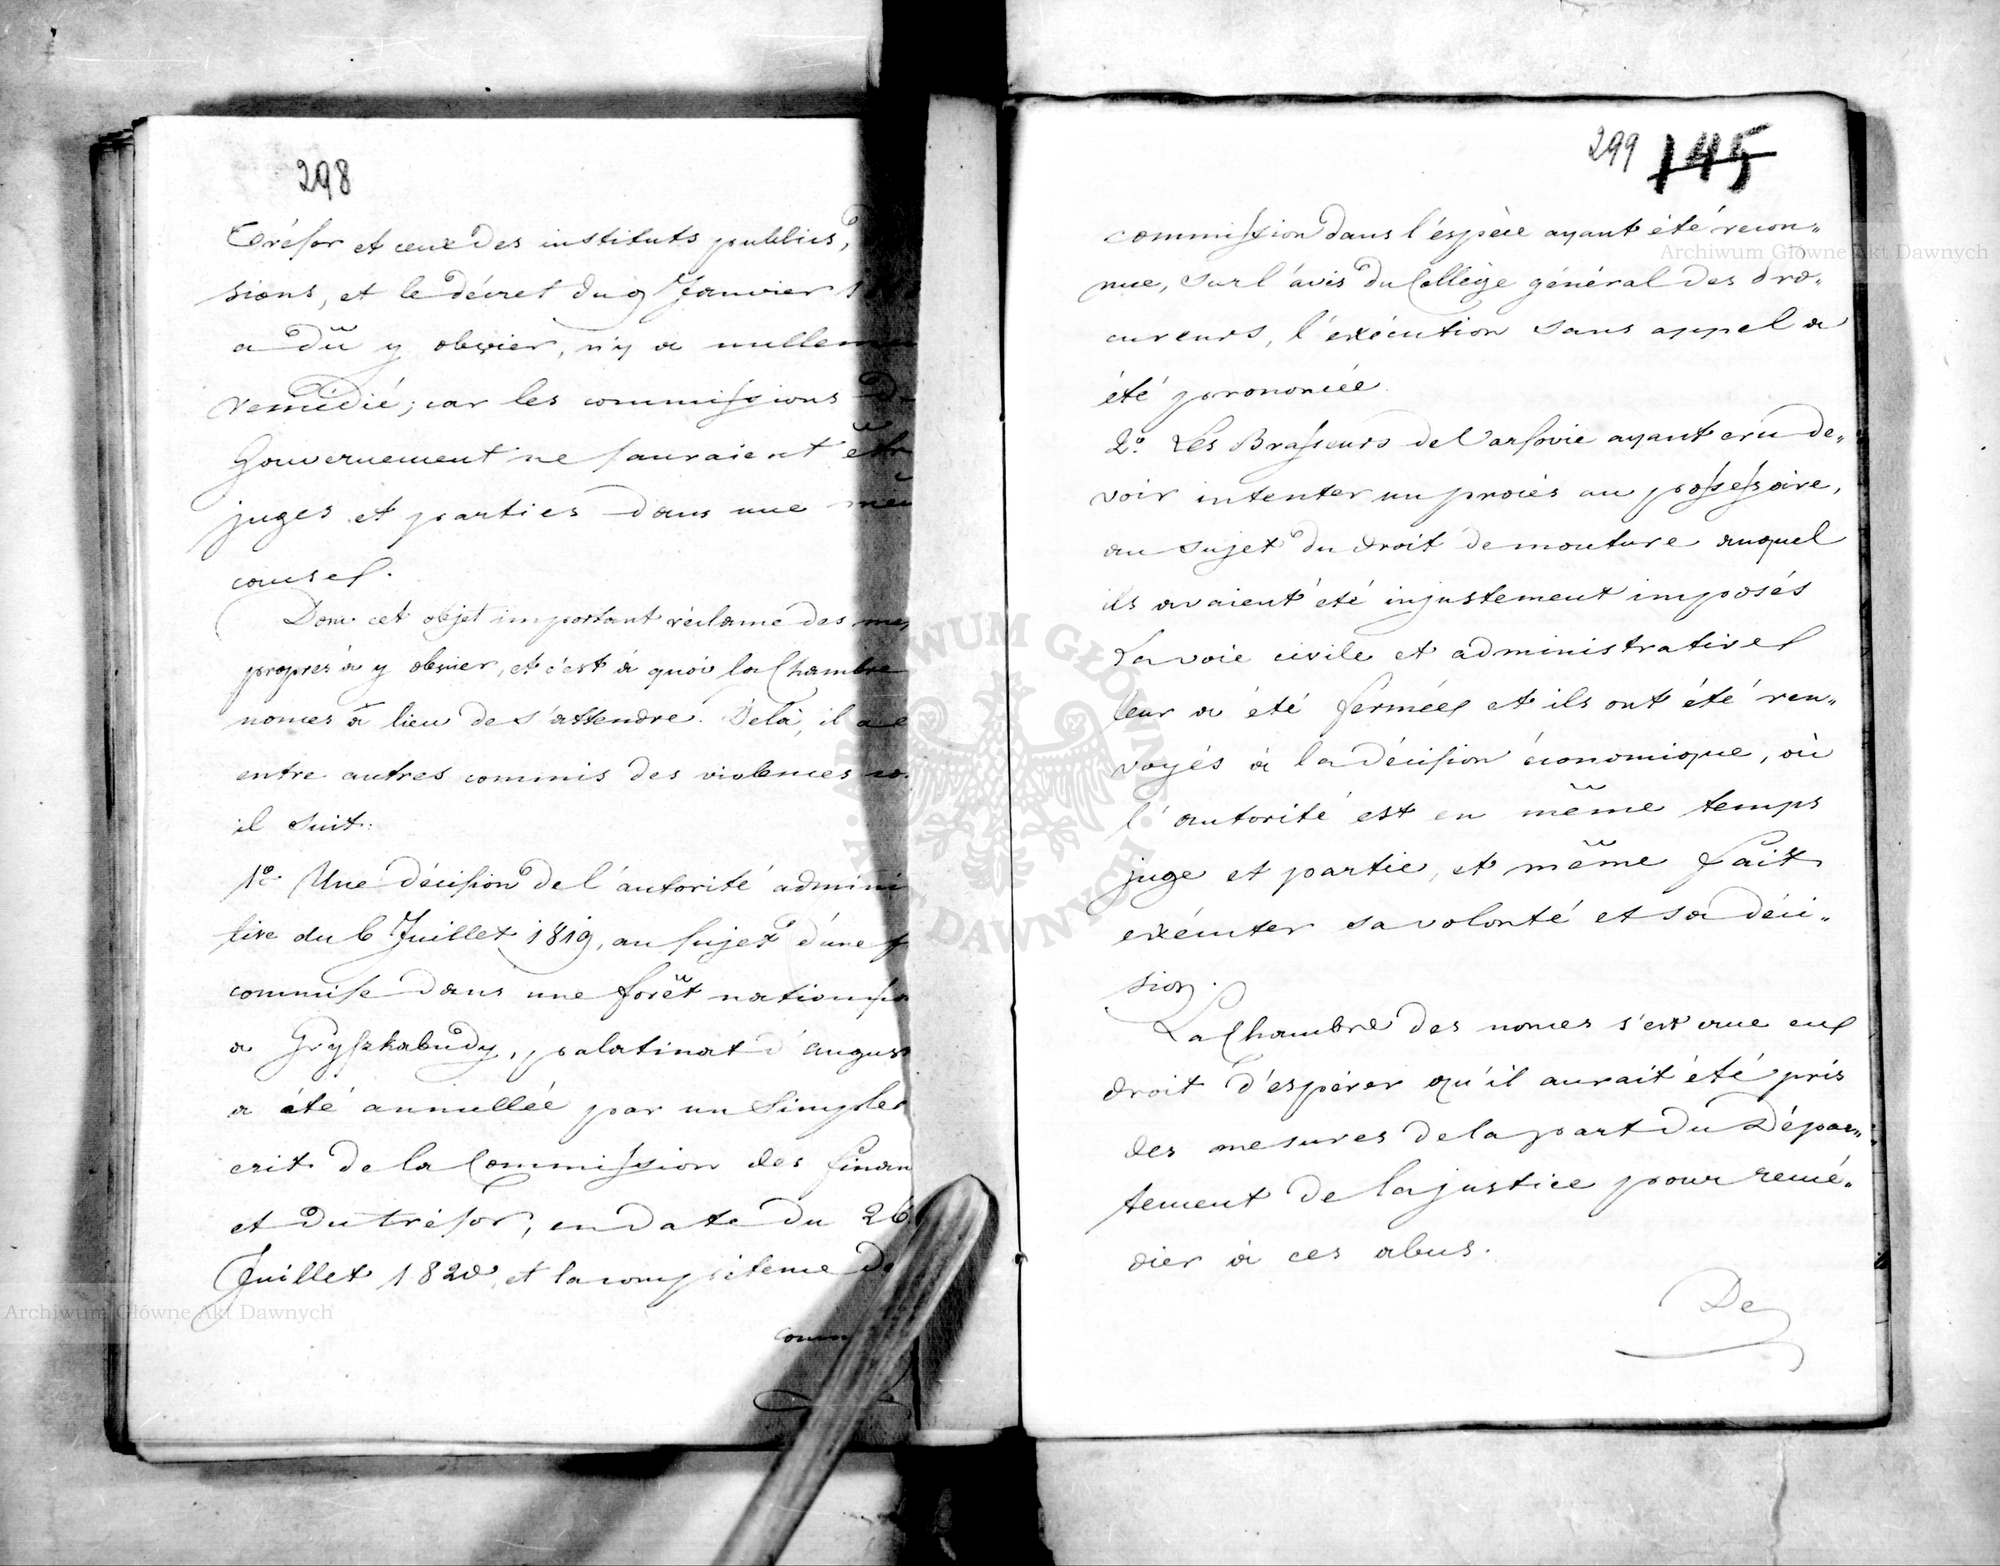 298
Trésor et ceux des instituts publics,
sions, et le décret du 9 Janvier 1
a dû y obvier, n'y a nullem
remédié; car les commissions d
Gouvernement ne sauraient êtr
juges et parties dans une mêm
cause.
Donc cet objet important réclame des me
propres à y obvier, et c'est à quoi la Chambre
nonces a lieu de s'attendre. Delà, il a e
entre autres commis des violences co
il suit:
1º Une décision de l'autorité admini
tive du 6 Juillet 1819, au sujet d'une f
commise dans une forêt nationa
a Gryszkabudy, palatinat d'Augus
a été annullée par un simple r
crit de la Commission des finan
et du trésor, en date du 26
Juillet 1820, et la compétence de
comm
299 145
commission dans l'espèce ayant été recon„
nue, sur l'avis du Collège général des Pro„
cureurs, l'exécution sans appel a
été prononcée.
2º Les Brasseurs de Varsovie ayant cru de„
voir intenter un procès au possessoire,
au sujet du droit de mouture auquel
ils avaient été injustement imposés
La voie civile et administrative
leur a été fermée et ils ont été ren„
voyés à la décision économique, où
l'autorité est en même temps
juge et partie, et même fait
exécuter sa volonté et sa déci„
sion.
La Chambre des nonces s'est crue en
droit d'espérer qu'il aurait été pris
des mesures de la part du Dépar„
tement de la justice pour remé„
dier à ces abus.
De
Archiwum Główne Akt Dawnych
Archiwum Główne Akt Dawnych
ARCHIWUM GŁÓWNE AKT DAWNYCH